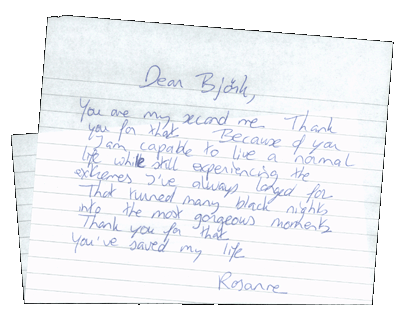 Dear Björk,
You are my second me Thank
you for that Because of you
I am capable to live a normal
life while still experiencing the
extremes I've always longed for
That turned many black nights
into the most gorgeous moments
Thank you for that
You've saved my life
Rosanne